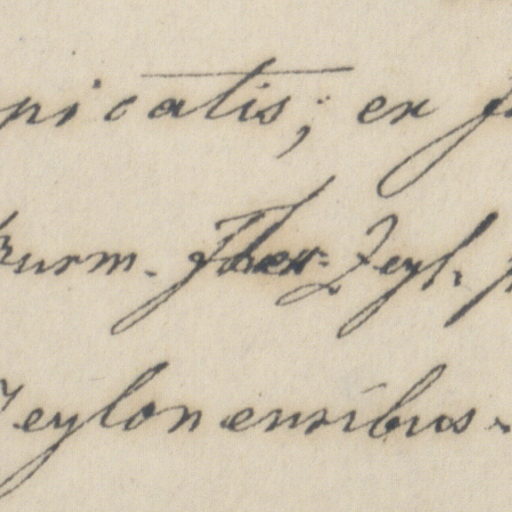 picatis; ex
Burm. Thes. Zeyl.
Zeylonensibus